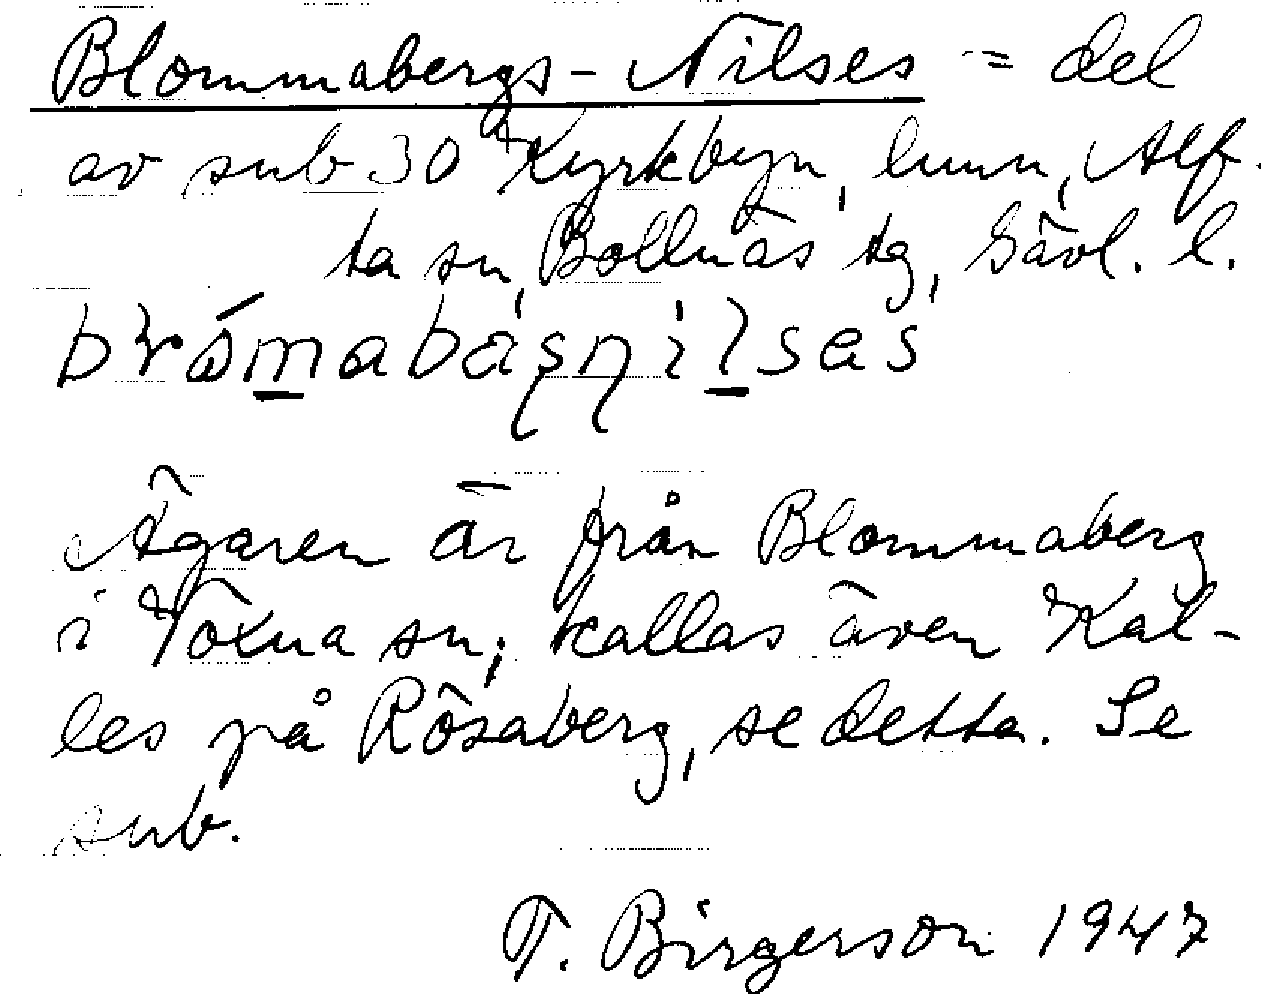 Blommabergs-Nilses = del
av sub 30 Kyrkbyn, hmn, Alf-
ta sn, Bollnäs tg, Gävl. l.
Ägaren är från Blommaberg
i Voxna sn; kallas även Kal-
les på Rösaberg, se detta. Se
sub.
T. Birgerson 1947